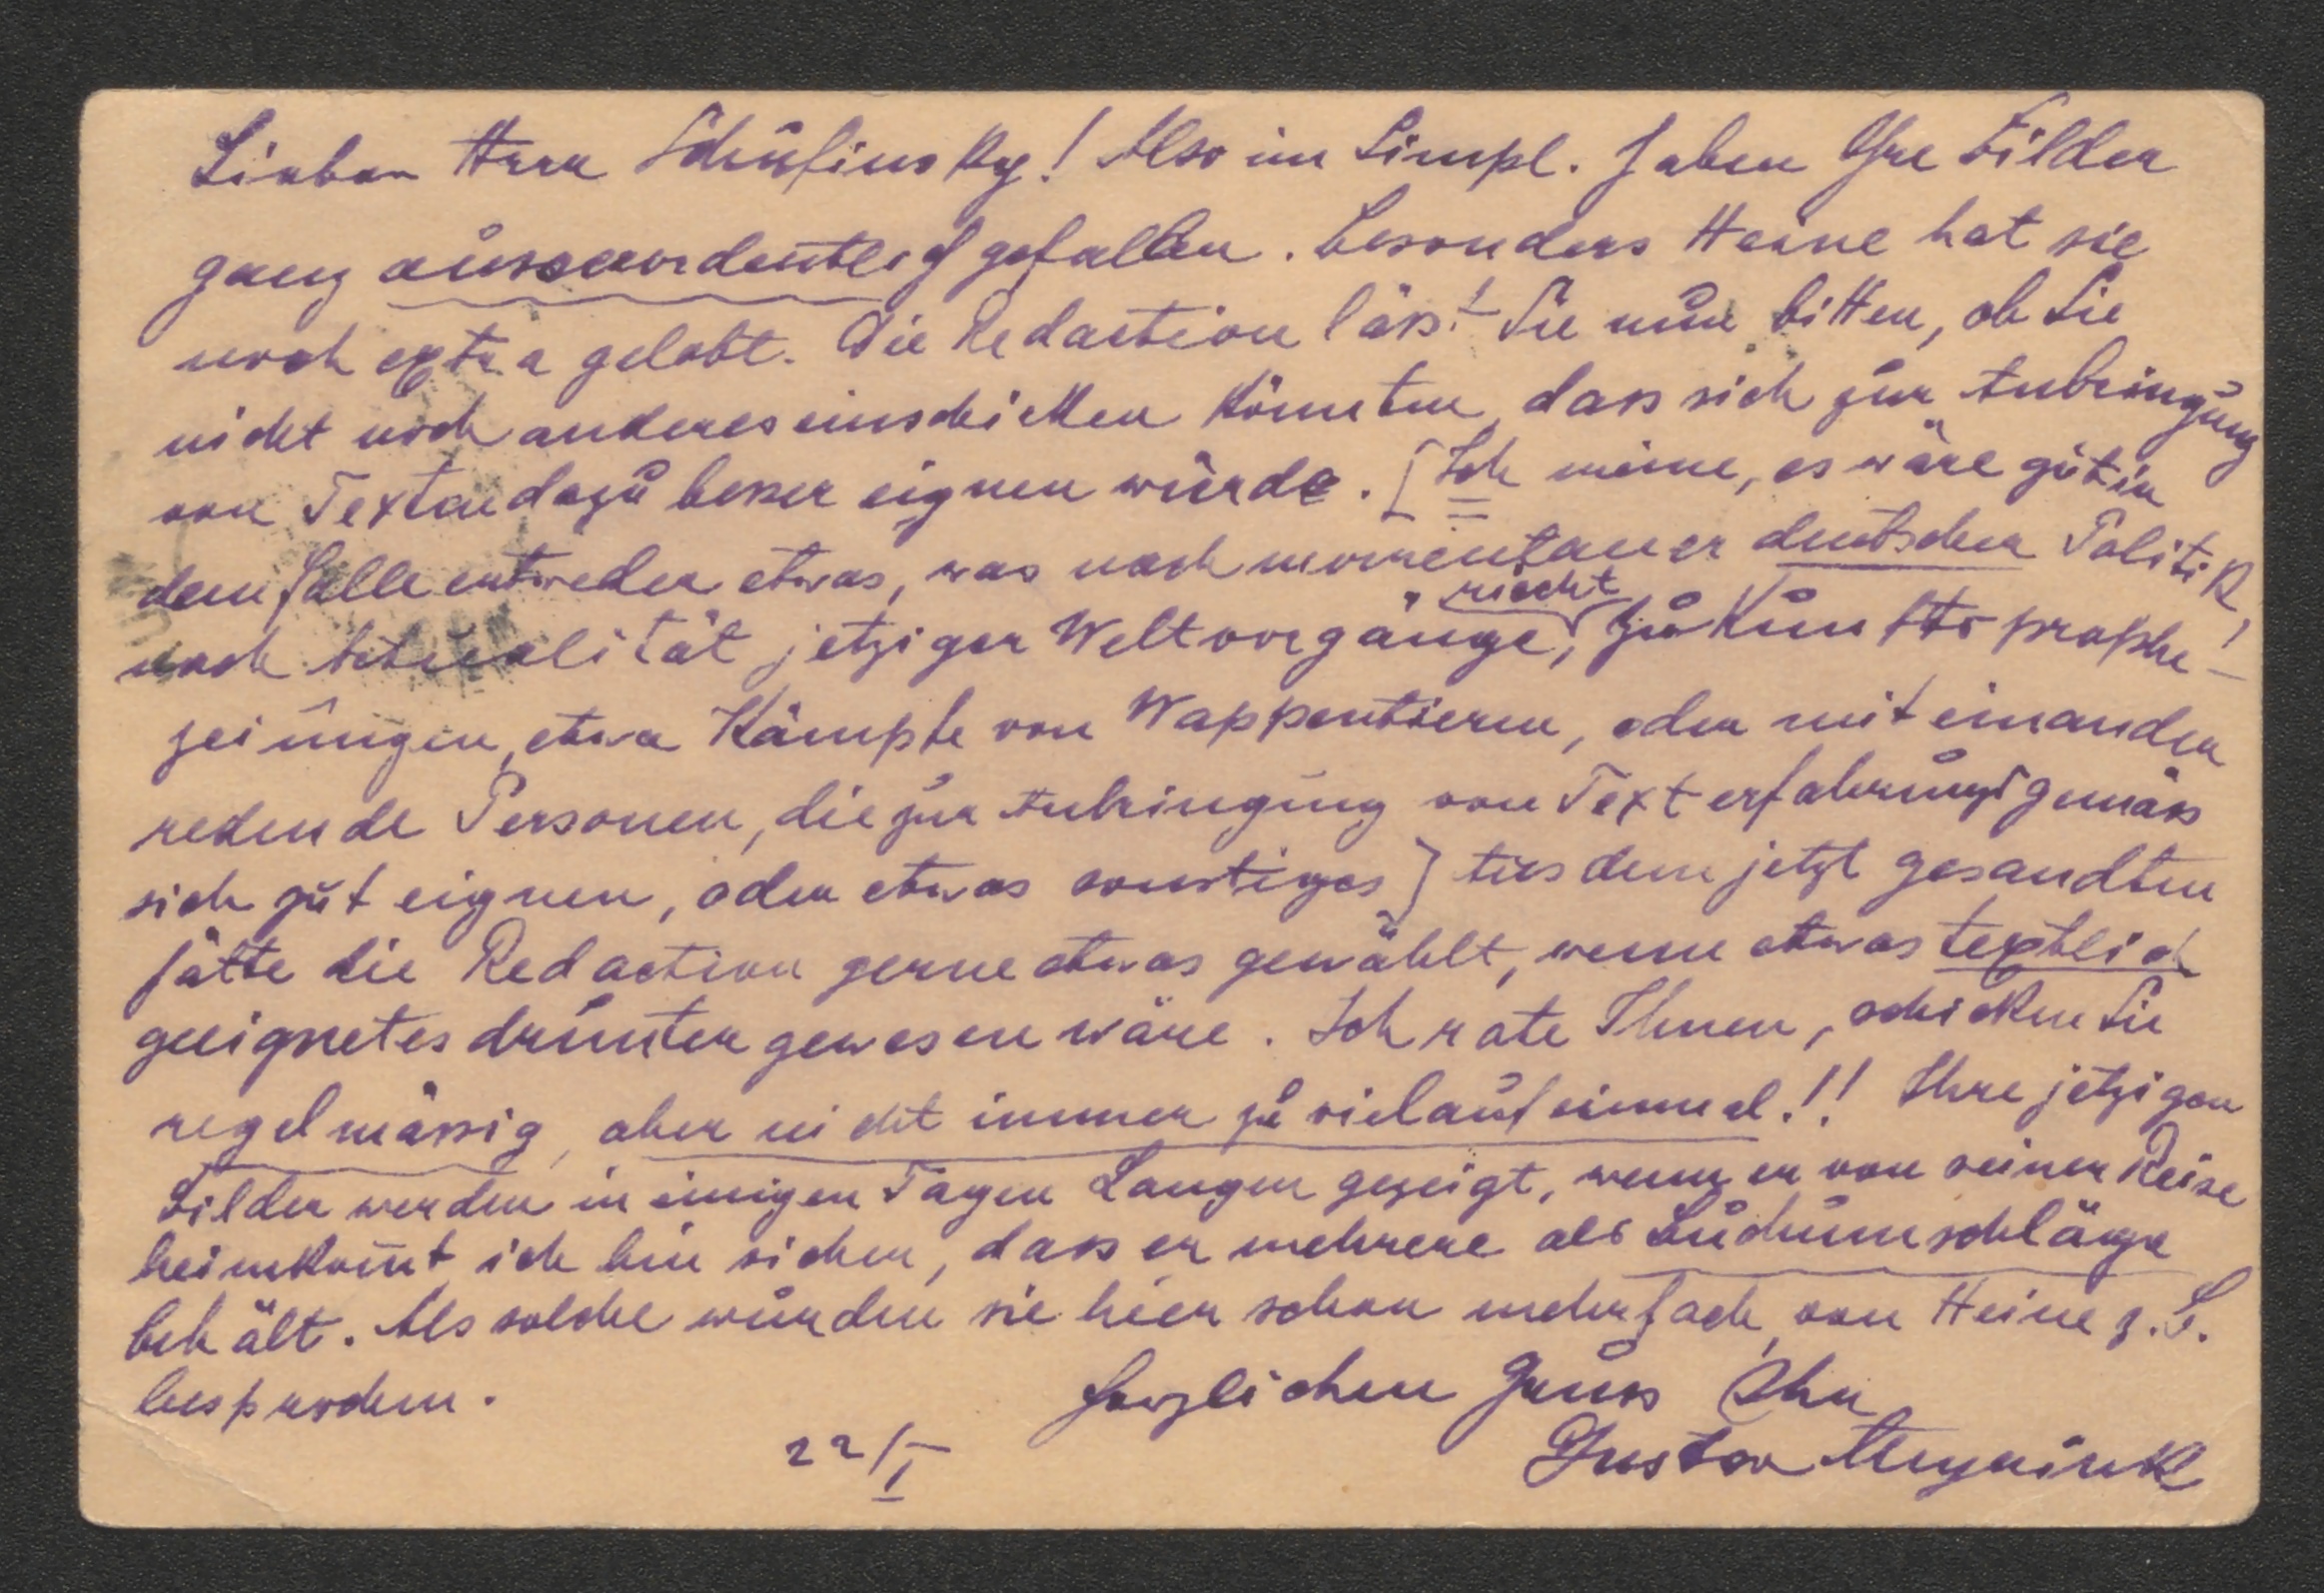 Lieber Herr Schusinsky! Also im Simpl. haben Ihre Bilder
ganz ausserordentlich gefallen. Besonders Heine hat sie
noch extra gelobt. Die Redaction lässt Sie nun bitten, ob Sie
nicht noch anderes einschicken könnten, dass sich zur Anbringung
von Texten dazu besser eignen würde. [Ich meine, es wäre gut in
dem Falle entweder etwas, was nach momentaner deutscher Politik,
nach Actualität jetziger Weltvorgänge, riecht, Zukunftsprophe-
zeiungen, etwa Kämpfe von Wappentieren, oder mit einander
redende Personen, die zur Anbringung von Text erfahrungsgemäss
sich gut eignen, oder etwas sonstiges] Aus dem jetzt gesandten
hätte die Redaction gerne etwas gewählt, wenn etwas textlich
geeignetes drunter gewesen wäre. Ich rate Ihnen, schicken Sie
regelmässig, aber nicht immer zu viel auf einmal!! Ihre jetzigen
Bilder werden in einigen Tagen Langen gezeigt, wenn er von seiner Reise
heimkom̄t, ich bin sicher, dass er mehrere als Buchumschläge
behält. Als solche wurden sie hier schon mehrfach, von Heine z.B.
besprochen.
Herzlichen Gruss Ihr
22/I
Gustav Meyrink